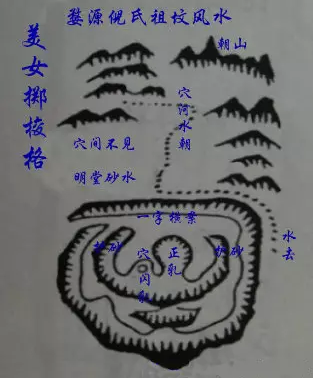 婺源倪氏祖坟风水
美女掷梭格
朝山
穴河水朝
穴间不见
明堂砂水
一字横案
护砂
穴闪乳
正乳
护砂
水去